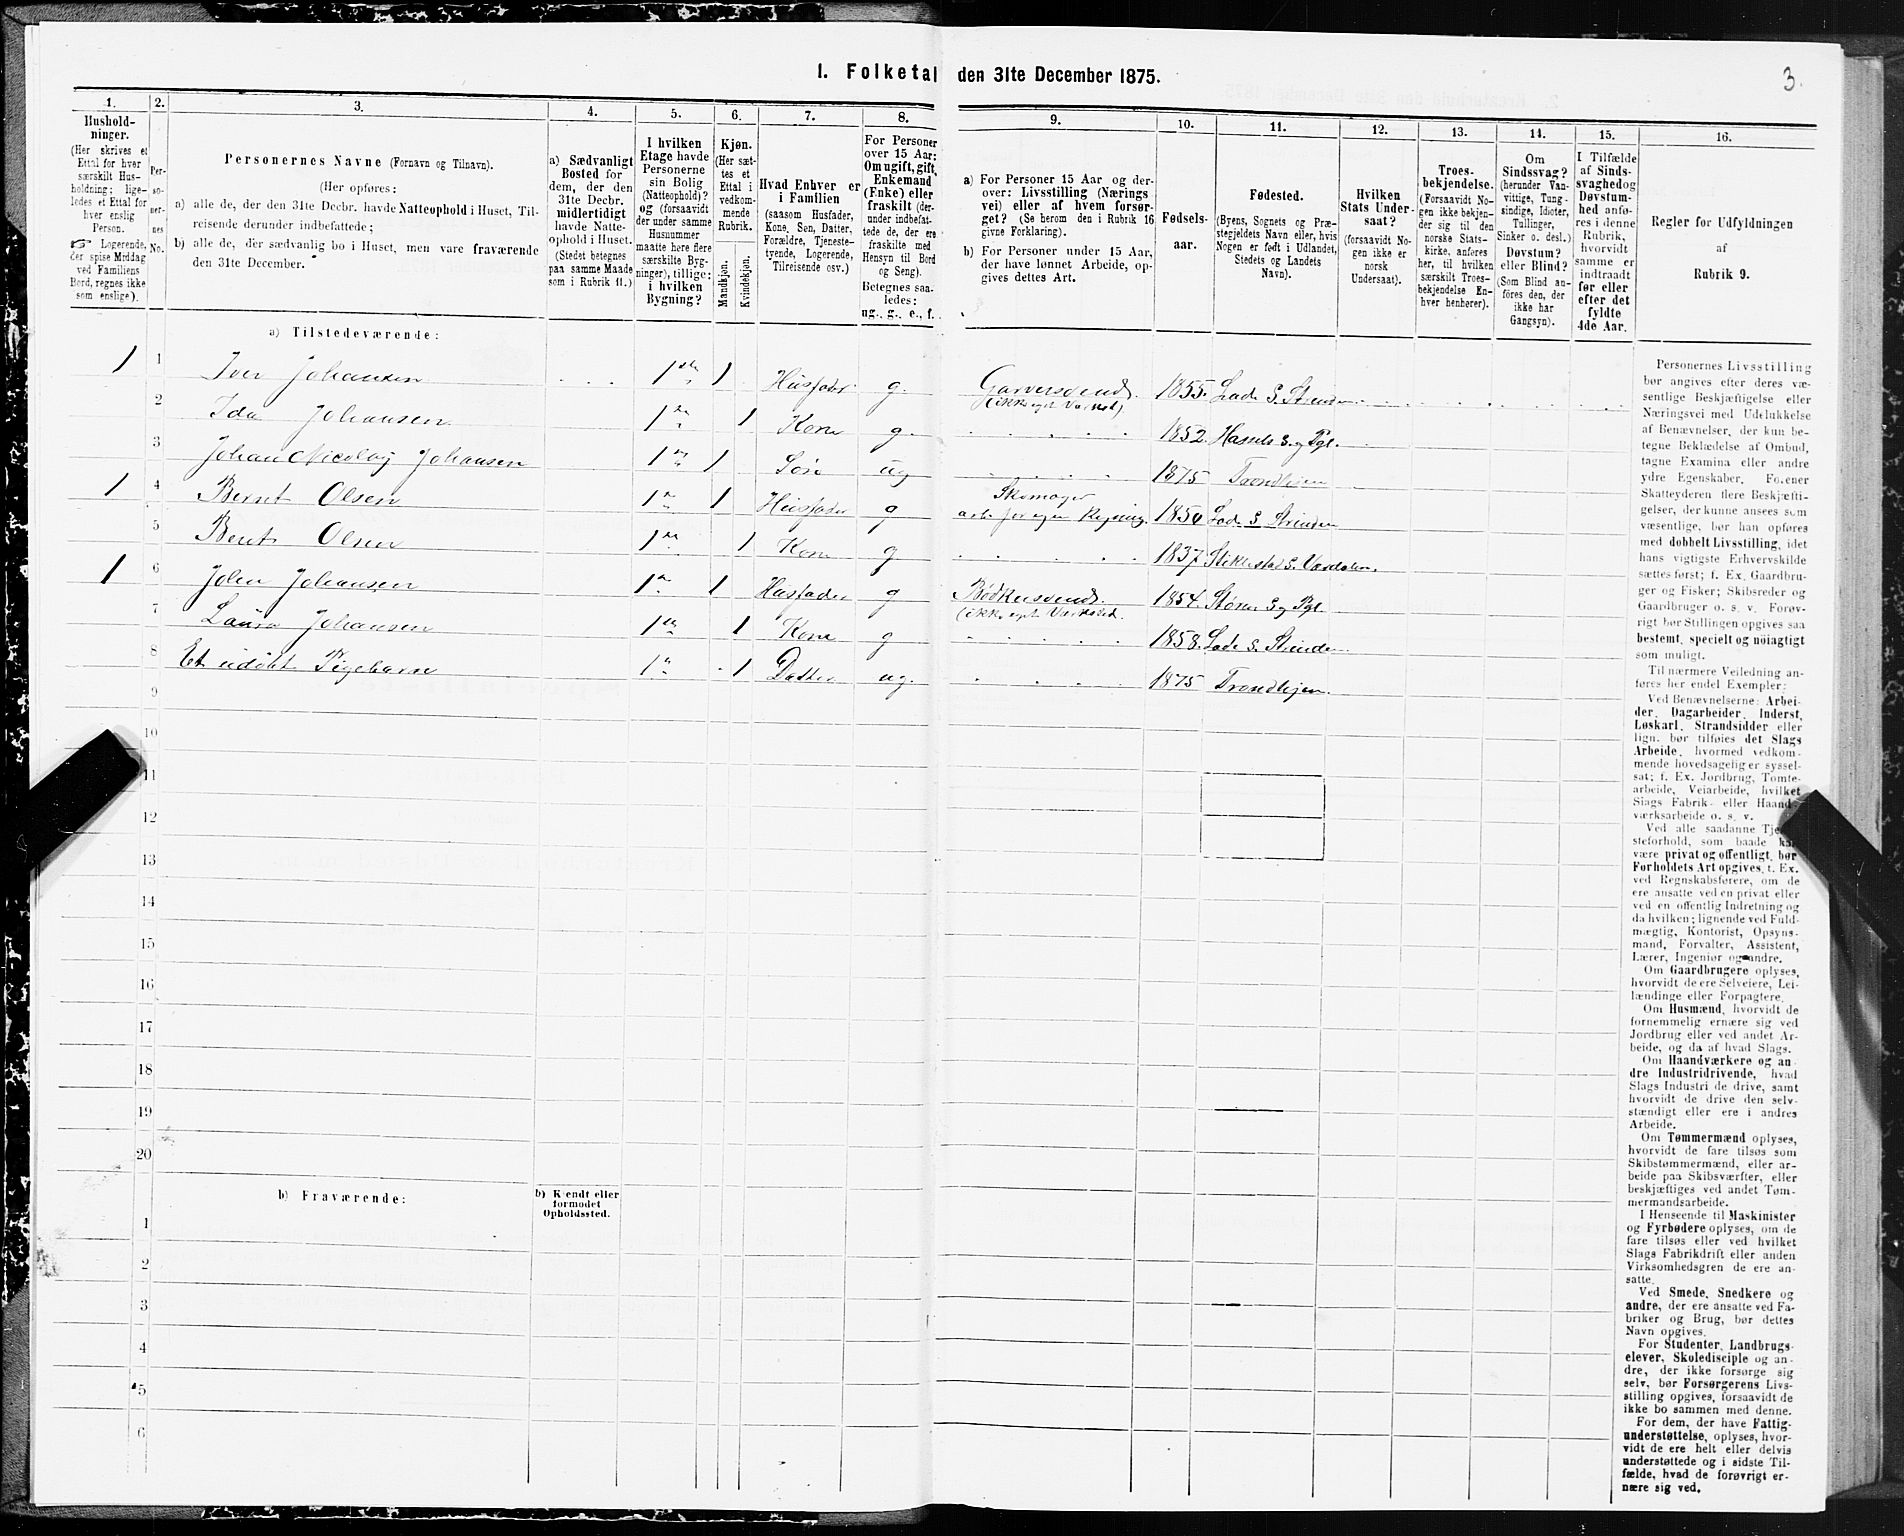 1. Folketal den 31te December 1875.
3.
1.
Hushold-
ninger.
(Her skrives et
Ettal for hver
særskilt Hus-
holdning; lige-
ledes et Ettal for
hver enslig
Person.
☞ Logerende,
der spise Middag
ved Familiens
Bord, regnes ikke
som enslige).
2.
Per-
so-
ner-
nes
No.
3.
Personernes Navne (Fornavn og Tilnavn).
(Her opføres:
a) alle de, der den 31te Decbr. havde Natteophold i Huset, Til-
reisende derunder indbefattede;
b) alle de, der sædvanlig bo i Huset, men vare fraværende
den 31te December.
4.
a) Sædvanligt
Bosted for
dem, der den
31te Decbr.
midlertidigt
havde Natte-
ophold i Huset.
(Stedet betegnes
paa samme Maade
som i Rubrik 11.)
5.
I hvilken
Etage havde
Personerne
sin Bolig
(Natteophold)?
og (forsaavidt
der under samme
Husnummer
maatte here flere
særskilte Byg-
ninger), tillige:
i hvilken
Bygning?
6.
Kjøn.
(Her sæt-
tes et
Ettal i
vedkom-
mende
Rubrik.
Mandkjøn.
Kvindekjøn.
7.
Hvad Enhver er
i Familien
(saasom Husfader,
Kone, Søn, Datter,
Forældre, Tjeneste-
tyende, Logerende,
Tilreisende osv.)
8.
For Personer
over 15 Aar:
Om ugift, gift,
Enkemand
(Enke) eller
fraskilt (der-
under indbefat-
tede de, der ere
fraskilte med
Hensyn til Bord
og Seng).
Betegnes saa-
ledes:
ug., g., e., f.
9.
a) For Personer 15 Aar og der-
over: Livsstilling (Nærings
vei) eller af hvem forsør-
get? (Se herom den i Rubrik 16
givne Forklaring).
b) For Personer under 15 Aar,
der have lønnet Arbeide, op-
gives dettes Art.
10.
Fødsels-
aar.
11.
Fødested.
(Byens, Sognets og Præ-
stegjeldets Navn eller, hvis
Nogen er født i Udlandet,
Stedets og Landets
Navn).
12.
Hvilken
Stats Under-
saat?
(forsaavidt No-
gen ikke er
norsk
Undersaat).
13.
Troes-
bekjendelse.
(Forsaavidt No-
gen ikke bekjen-
der sig til den
norske Stats-
kirke, anføres
her, til hvilken
særskilt Troes-
bekjendelse En-
hver henhører).
14.
Om
Sindssvag?
(herunder Van-
vittige, Tung-
sindige, Idioter,
Tullinger,
Sinker o. desl.)
Døvstum?
eller Blind?
(Som Blind an-
føres den, der
ikke har
Gangsyn).
15.
I Tilfælde
af Sinds-
svaghed og
Døvstum-
hed anfø-
res i denne
Rubrik,
hvorvidt
samme er
indtraadt
før eller
efter det
fyldte
4de Aar.
16.
Regler for Udfyldningen
af
Rubrik 9.
a) Tilstedeværende:
1 1 Iver Johansen 1 1 Husfader g. Garversvend. 1855. Lade S. Strinden
(ikke eget Værksted)
2 Ida Johansen 1 1 Kone g. 1852. S. og Pgl.
3 Johan Nicolay Johansen 1 1 Søn ug 1875 Trondhjem
1 4 Bernt Olsen 1 1 Husfader g Skomager 1850 Lade S Strinden
arb. for egen Regning.
5 Berit Olsen 1 1 Kone g 1837. Stiklestad S. Værdalen.
1 6 John Johansen 1 1 Husfader g Bødkersvend. 1854. Støren S og Pgl.
(ikke eget Værksted.
7 Laura Johansen 1 1 Kone g 1858. Lade S. Strinden.
8 Et udøbt Pigebarn 1 1 Datter ug. 1875 Trondhjem.
9
10
11
12
13
14
15
16
17
18
19
20
b) Fraværende:
b) Kjendt eller
formodet
Opholdssted.
1
2
3
4
5
6
Personernes Livsstilling
bør angives efter deres væ-
sentlige Beskjæftigelse eller
Næringsvei med Udelukkelse
af Benævnelser, der kun be-
tegne Beklædelse af Ombud,
tagne Examina eller andre
ydre Egenskaber. Forener
Skatteyderen flere Beskjæfti-
gelser, der kunne ansees som
væsentlige, bør han opføres
med dobbelt Livsstilling, idet
hans vigtigste Erhvervskilde
sættes først; f. Ex. Gaardbru-
ger og Fisker; Skibsreder og
Gaardbruger o. s. v. Forøv-
rigt bør Stillingen opgives saa
bestemt, specielt og nøiagtigt
som muligt.
Til nærmere Veiledning an-
føres her endel Exempler:
Ved Benævnelserne: Arbei-
der, Dagarbeider, Inderst,
Løskarl, Strandsidder eller
lign. bør tilføies det Slags
Arbeide, hvormed vedkom-
mende hovedsagelig er syssel-
sat; f. Ex. Jordbrug, Tomte-
arbeide, Veiarbeide, hvilket
Slags Fabrik- eller Haand-
værksarbeide o. s. v.
Ved alle saadanne Tje
steforhold, som baade
være privat og offentligt, bør
Forholdets Art opgives, f. Ex.
ved Regnskabsførere, om de
ere ansatte ved en privat eller
ved en offentlig Indretning og
da hvilken; lignende ved Fuld-
mægtig, Kontorist, Opsyns-
mand, Forvalter, Assistent,
Lærer, Ingeniør og andre.
Om Gaardbrugere oplyses,
hvorvidt de ere Selveiere, Lei-
lændinge eller Forpagtere.
Om Husmænd, hvorvidt de
fornemmelig ernære sig ved
Jordbrug eller ved andet Ar-
beide, og da af hvad Slags.
Om Haandværkere og an-
dre Industridrivende, hvad
Slags Industri de drive, samt
hvorvidt de drive den selv-
stændigt eller ere i andres
Arbeide.
Om Tømmermænd oplyses,
hvorvidt de fare tilsøs som
Skibstømmermænd, eller ar-
beide paa Skibsværfter, eller
beskjæftiges ved andet Tøm-
mermandsarbeide.
I Henseende til Maskinister
og Fyrbødere oplyses, om de
fare tilsøs eller ved hvilket
Slags Fabrikdrift eller anden
Virksomhedsgren de ere an-
satte.
Ved Smede, Snedkere og
andre, der ere ansatte ved Fa-
briker og Brug, bør dettes
Navn opgives.
For Studenter, Landbrugs-
elever, Skoledisciple og an-
dre, der ikke forsørge sig
selv, bør Forsørgerens Livs-
stilling opgives, forsaavidt de
ikke bo sammen med denne.
For dem, der have Fattig-
understøttelse, oplyses, hvor-
vidt de ere helt eller delvis
understøttede og i sidste Til-
fælde, hvad de forøvrigt er-
nære sig ved.